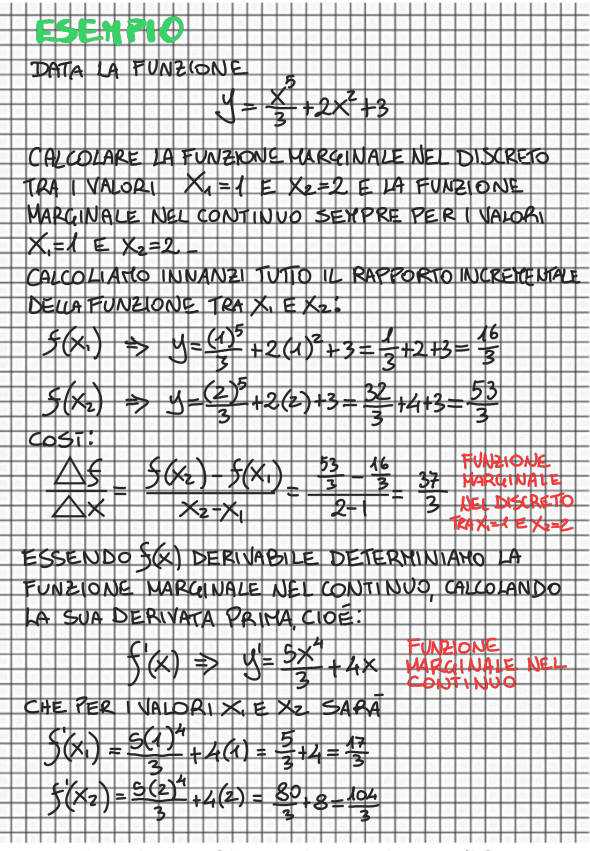 ESEMPIO
DATA LA FUNZIONE
y = x⁵/3 + 2x² + 3
CALCOLARE LA FUNZIONE MARGINALE NEL DISCRETO
TRA I VALORI X₁=1 E X₂=2 E LA FUNZIONE
MARGINALE NEL CONTINUO SEMPRE PER I VALORI
X₁=1 E X₂=2 -
CALCOLIAMO INNANZI TUTTO IL RAPPORTO INCREMENTALE
DELLA FUNZIONE TRA X₁ E X₂:
f(x₁) ⇒ y = (1)⁵/3 + 2(1)² + 3 = 1/3 + 2 + 3 = 16/3
f(x₂) ⇒ y = (2)⁵/3 + 2(2) + 3 = 32/3 + 4 + 3 = 53/3
COSÌ:
Δf/Δx = (f(x₂) - f(x₁))/(x₂ - x₁) = (53/3 - 16/3)/(2 - 1) = 37/3
FUNZIONE
MARGINALE
NEL DISCRETO
TRA X₁=1 E X₂=2
ESSENDO f(x) DERIVABILE DETERMINIAMO LA
FUNZIONE MARGINALE NEL CONTINUO, CALCOLANDO
LA SUA DERIVATA PRIMA, CIOÈ:
f'(x) ⇒ y' = 5x⁴/3 + 4x
FUNZIONE
MARGINALE NEL
CONTINUO
CHE PER I VALORI X₁ E X₂ SARÀ
f'(x₁) = 5(1)⁴/3 + 4(1) = 5/3 + 4 = 17/3
f'(x₂) = 5(2)⁴/3 + 4(2) = 80/3 + 8 = 104/3